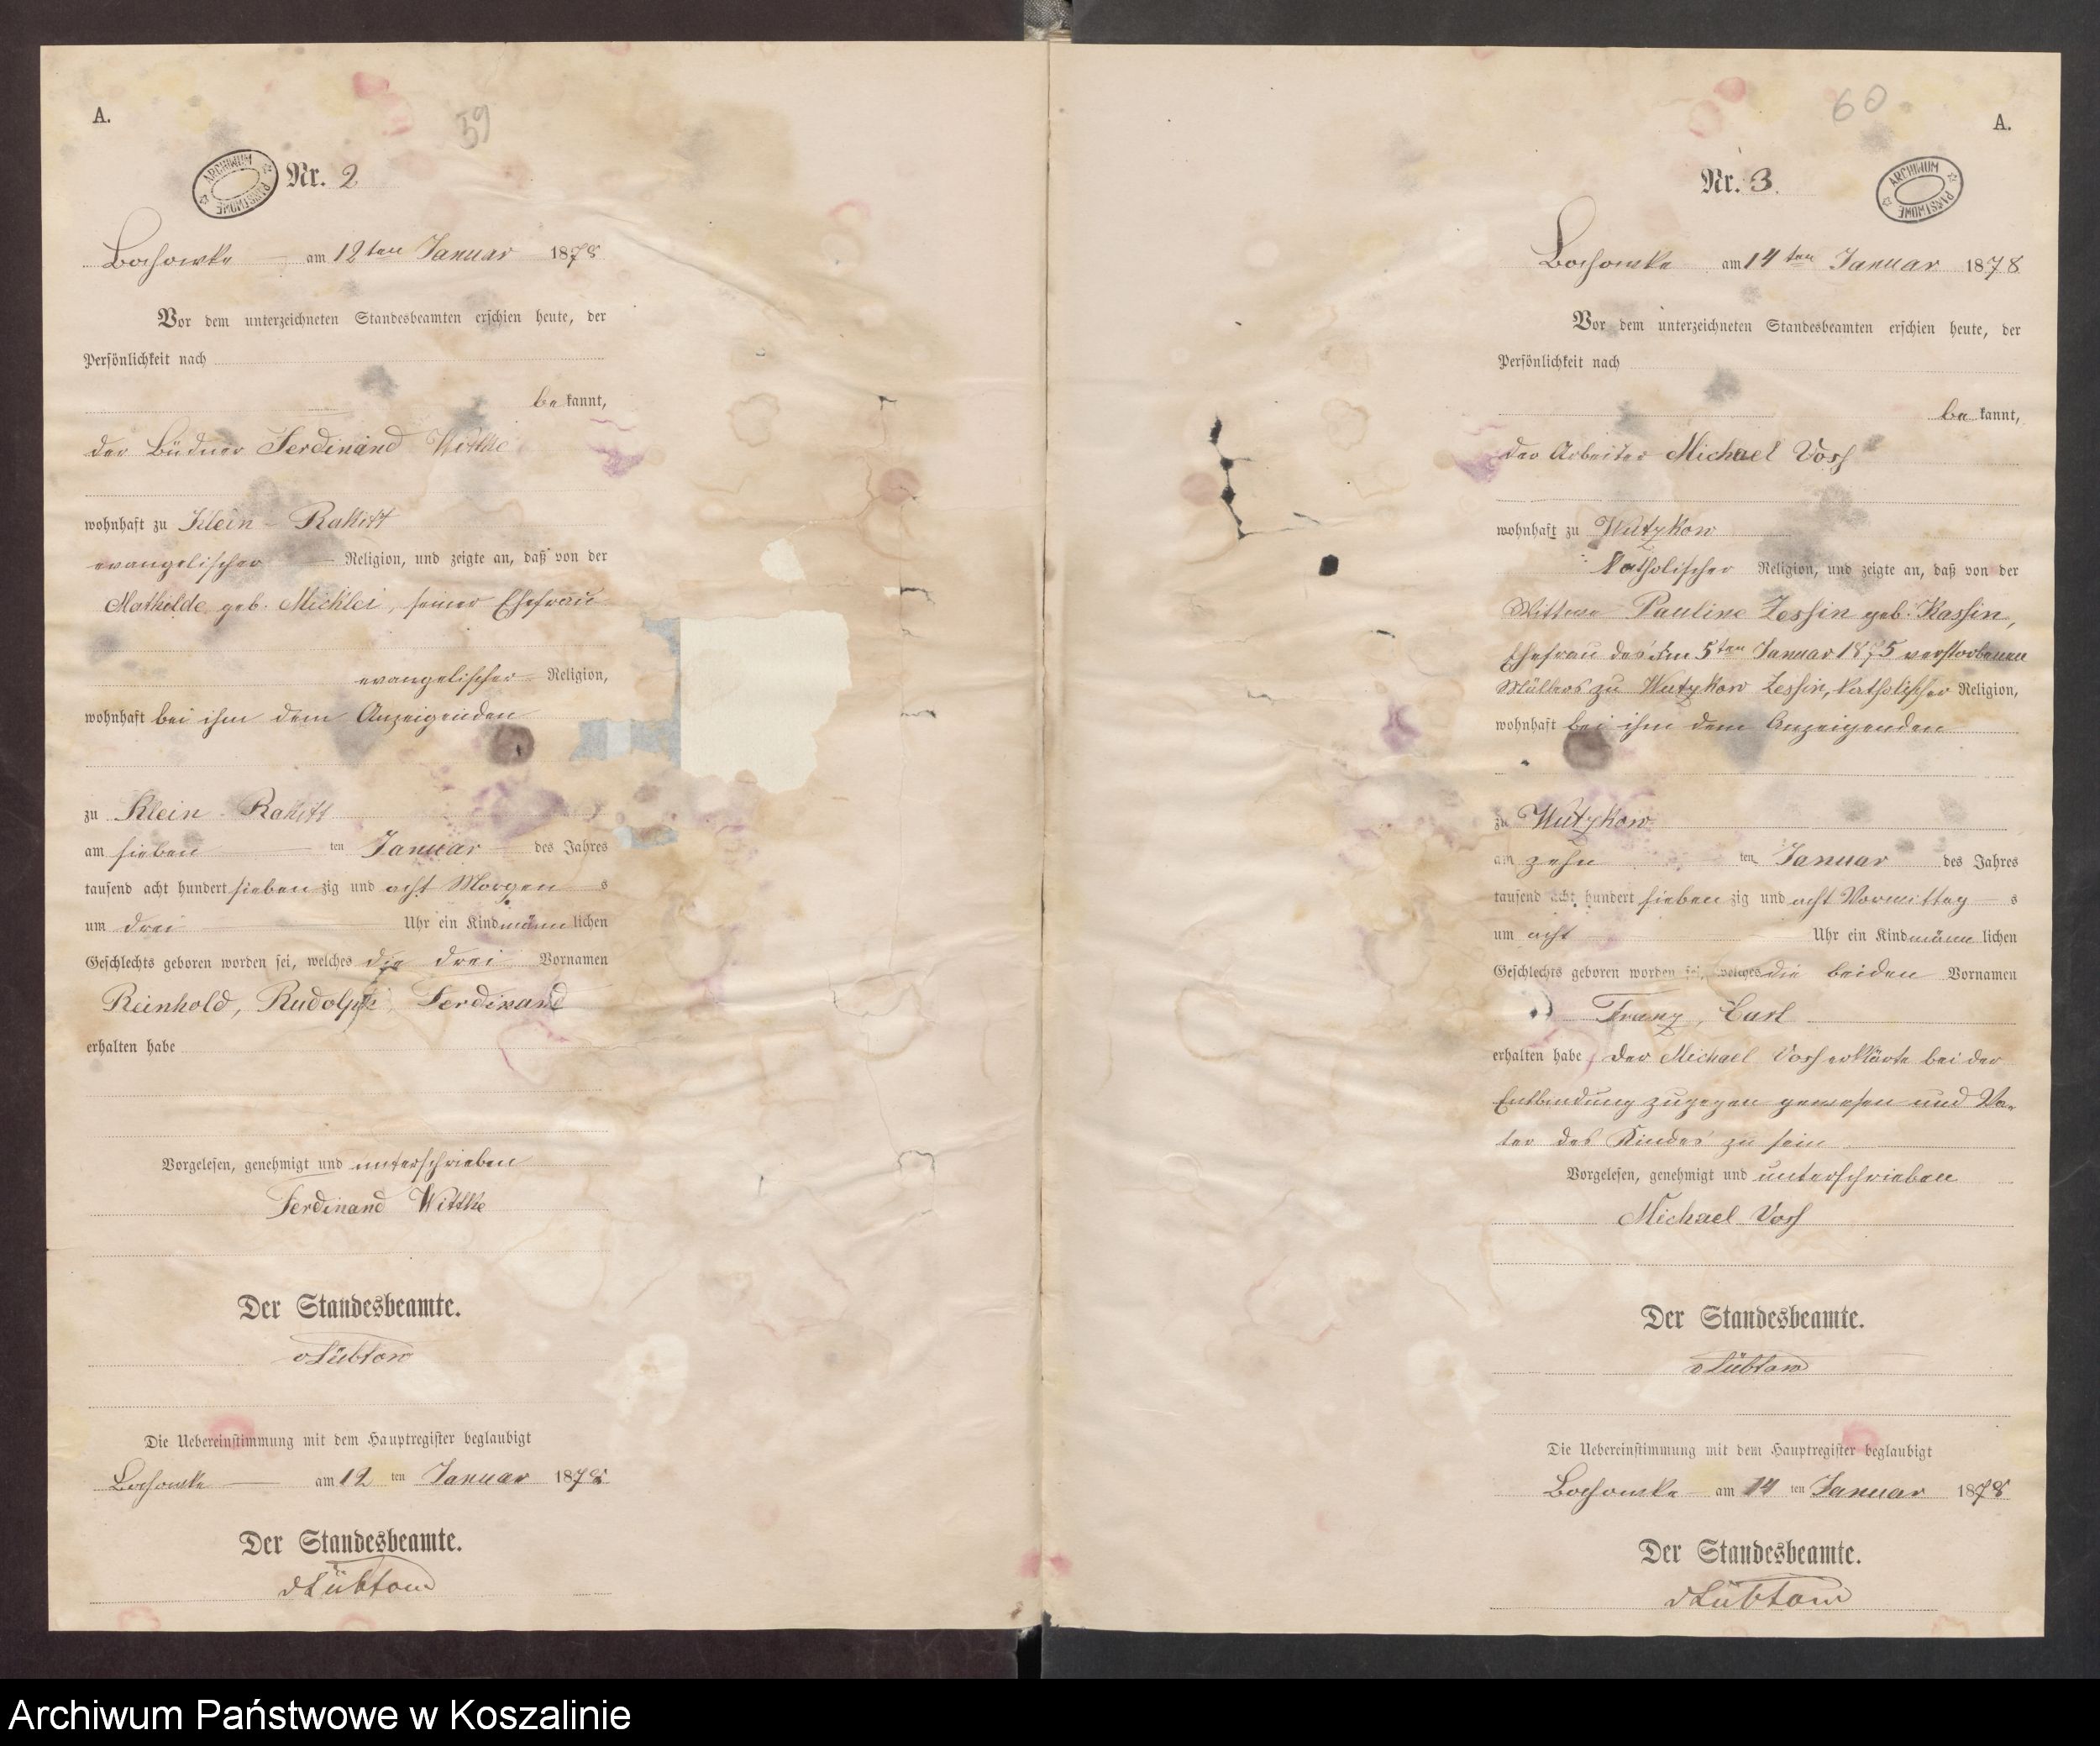 A.
59
ARCHIWUM PAŃSTWOWE
Nr. 2
Bochowke am 12ten Januar 1878
Vor dem unterzeichneten Standesbeamten erschien heute, der
Persönlichkeit nach
bekannt,
der Büdner Ferdinand Wittke
wohnhaft zu Klein-Rakitt
evangelischer Religion, und zeigte an, daß von der
Mathilde geb. Michlei, seiner Ehefrau
evangelischer Religion,
wohnhaft bei ihm dem Anzeigenden
zu Klein-Rakitt
am sieben ten Januar des Jahres
tausend acht hundert siebenzig und acht Morgens
um drei Uhr ein Kind männlichen
Geschlechts geboren worden sei, welches die drei Vornamen
Reinhold, Rudolph, Ferdinand
erhalten habe
Vorgelesen, genehmigt und unterschrieben
Ferdinand Wittke
Der Standesbeamte.
vLübtow
Die Uebereinstimmung mit dem Hauptregister beglaubigt
Bochowke am 12 ten Januar 1878
Der Standesbeamte.
vLübtow
60
A.
Nr. 3.
ARCHIWUM PAŃSTWOWE
Bochowke am 14ten Januar 1878
Vor dem unterzeichneten Standesbeamten erschien heute, der
Persönlichkeit nach
bekannt,
der Arbeiter Michael Voss
wohnhaft zu Wutzkow
katholischer Religion, und zeigte an, daß von der
Wittwe Pauline Zessin geb. Kassin,
Ehefrau des am 5ten Januar 1875 verstorbenen
Müllers zu Wutzkow Zessin, katholischer Religion,
wohnhaft bei ihm dem Anzeigenden
zu Wutzkow
am zehn ten Januar des Jahres
tausend acht hundert siebenzig und acht Vormittags
um acht Uhr ein Kind männlichen
Geschlechts geboren worden sei, welches die beiden Vornamen
Franz, Carl
erhalten habe, der Michael Voss erklärte bei der
Entbindung zugegen gewesen und Va-
ter des Kindes zu sein
Vorgelesen, genehmigt und unterschrieben
Michael Voss
Der Standesbeamte.
vLübtow
Die Uebereinstimmung mit dem Hauptregister beglaubigt
Bochowke am 14 ten Januar 1878
Der Standesbeamte.
vLübtow
Archiwum Państwowe w Koszalinie